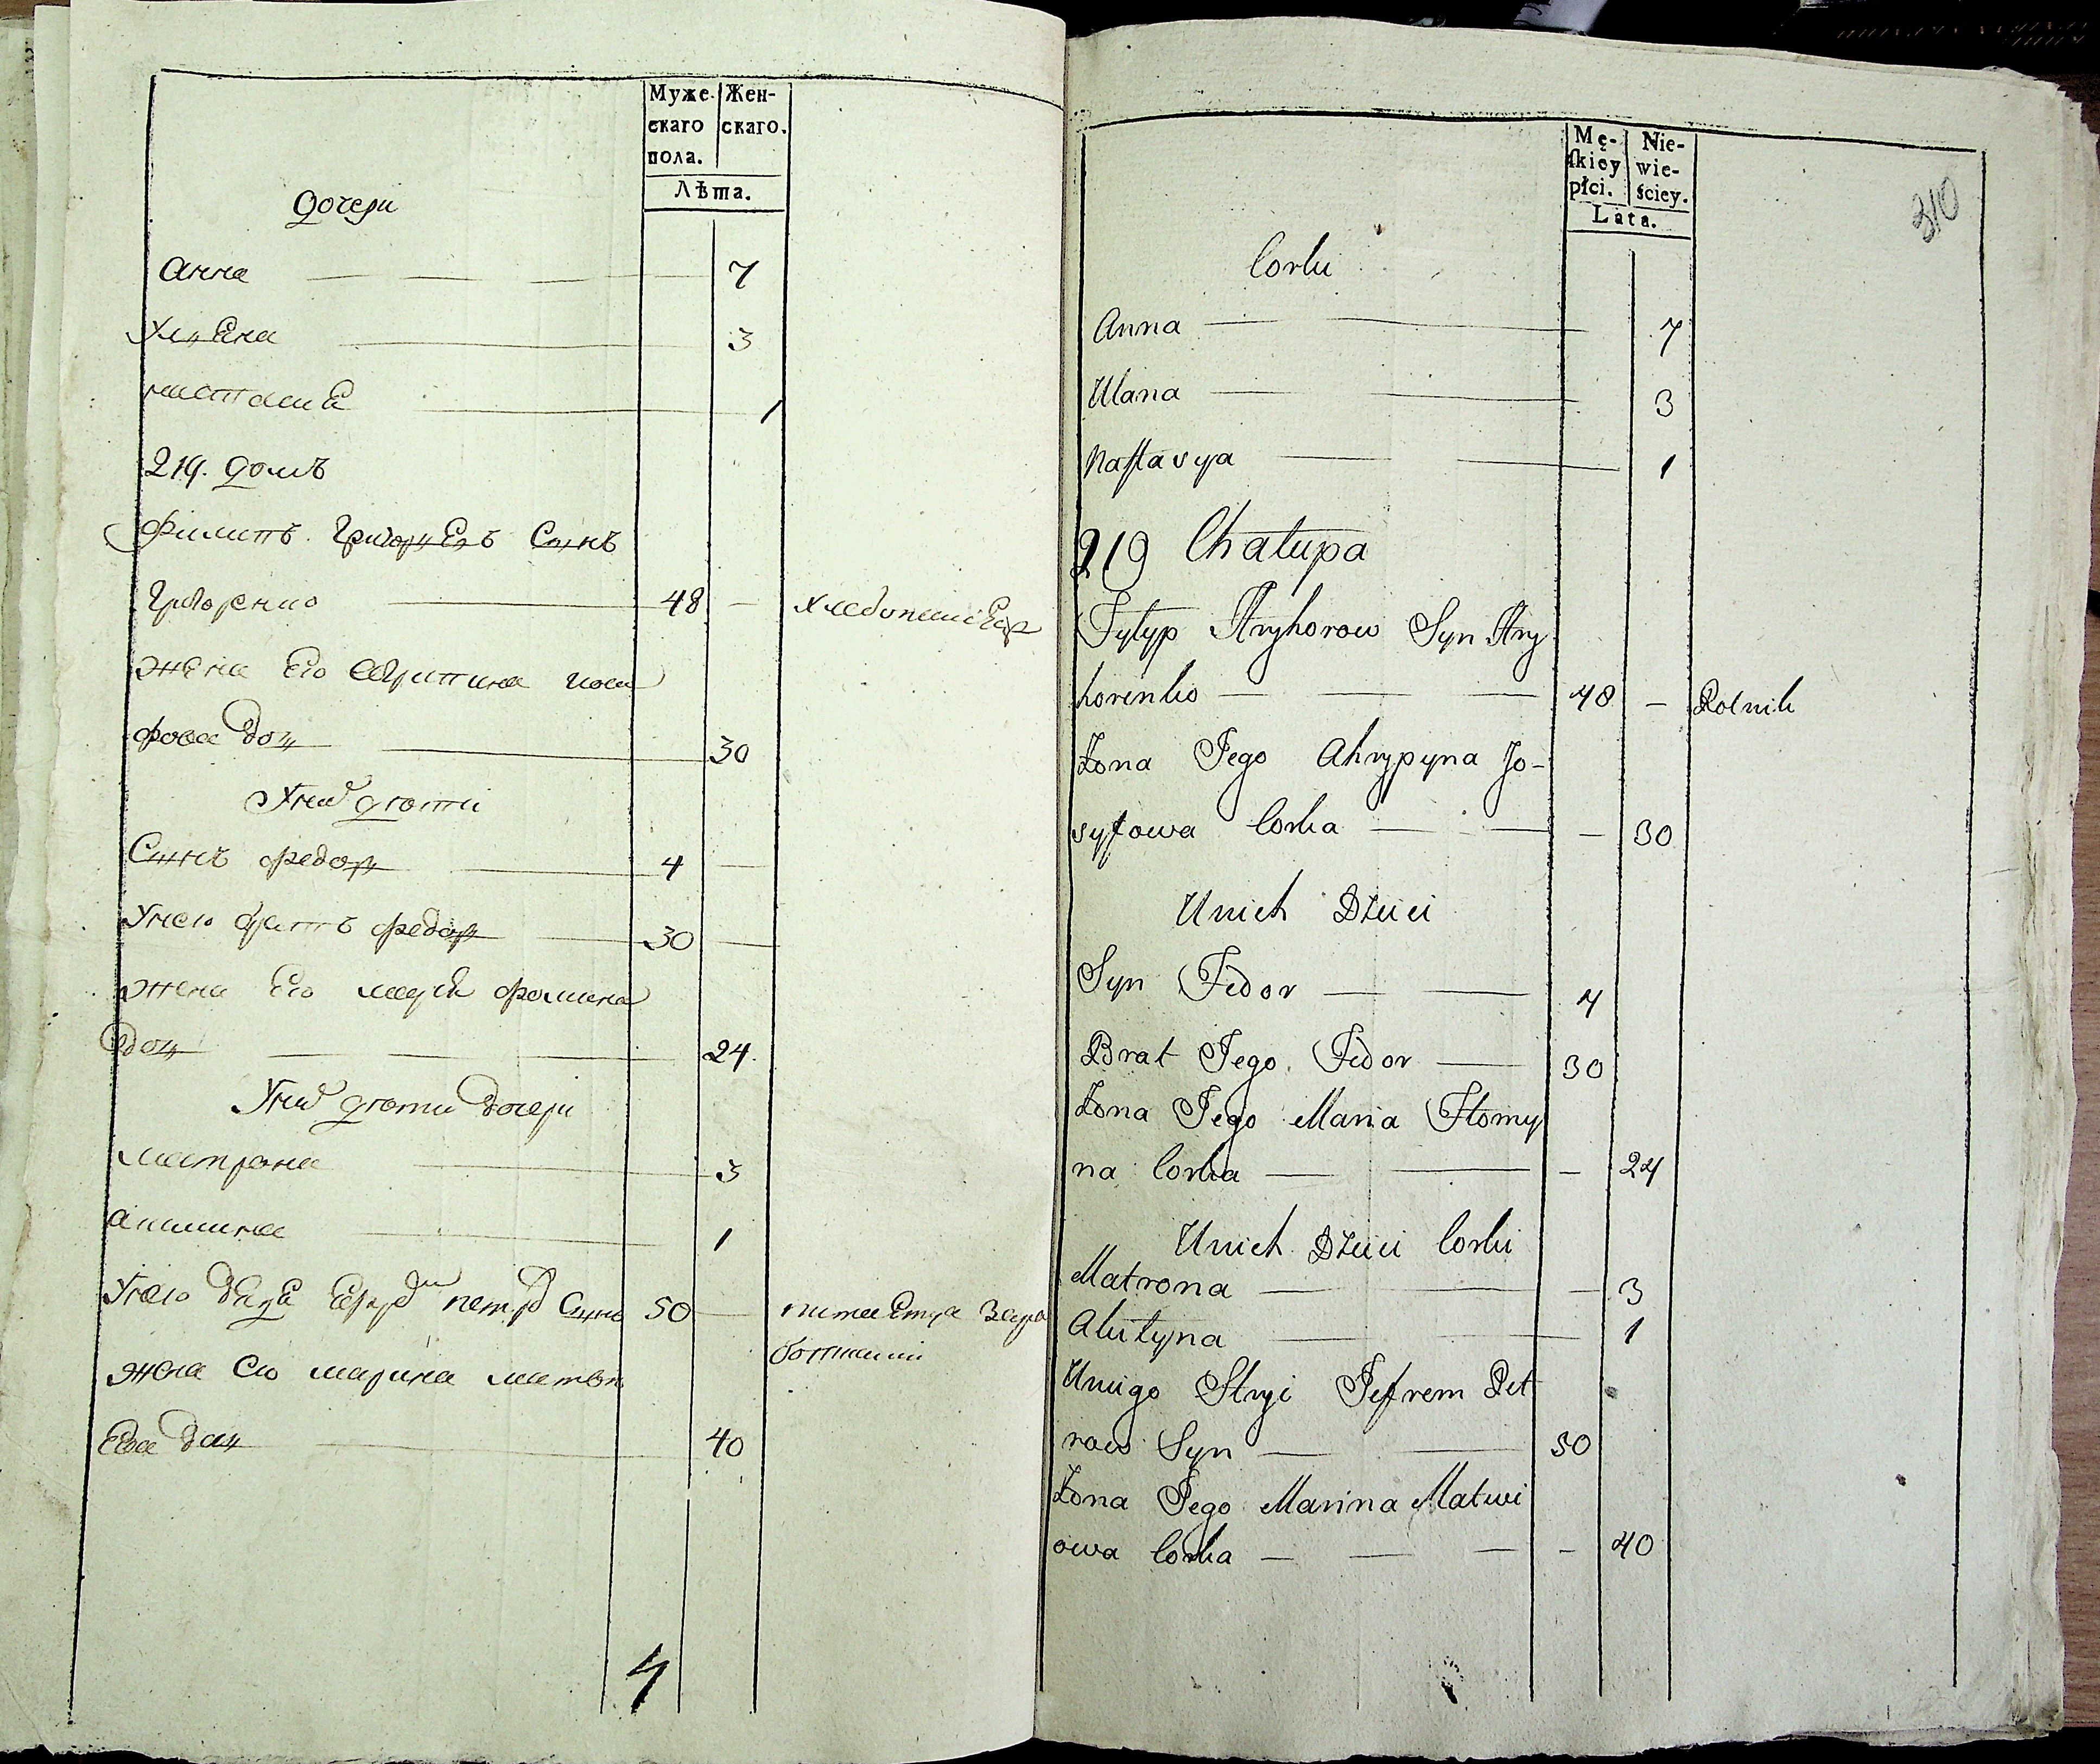 Муже-
скаго
пола.
Жен-
скаго.
Лѣта.
дочери
Анна 7
Улиена 3
настасиа 1
219. домъ
Филипъ Григориевъ Сынъ
Григоренко 48 — хлебопашецъ
жена его Агрипина иоси
фова доч 30
У них дѣти
Сынъ Федор 4 —
У него братъ Федор 30 —
жена его мария фомина
доч 24
У них дѣти дочери
матрона 3
Акилина 1
У него дядя Ефрем петров Сынъ 50 — питается зара
ботками
жена его марина матве
ева доч 40
4
Mę-
skiey
płci.
Nie-
wie-
ściey.
Lata.
310
Corki
Anna 7
Ulana 3
Nastasya 1
219 Chałupa
Fylyp Hryhorow Syn Hry
horenko — 48 — Rolnik
Żona Jego Ahrypyna Jo-
syfowa Corka — 30
U nich Dzieci
Syn Fedor — 4
Brat Jego Fedor — 30
Żona Jego Maria Chomy
na Corka — 24
U nich Dzieci Corki
Matrona — 3
Akilyna 1
U niego Stryi Jefrem Pet
row Syn — 50
Żona Jego Marina Matwi
owa Corka — 40